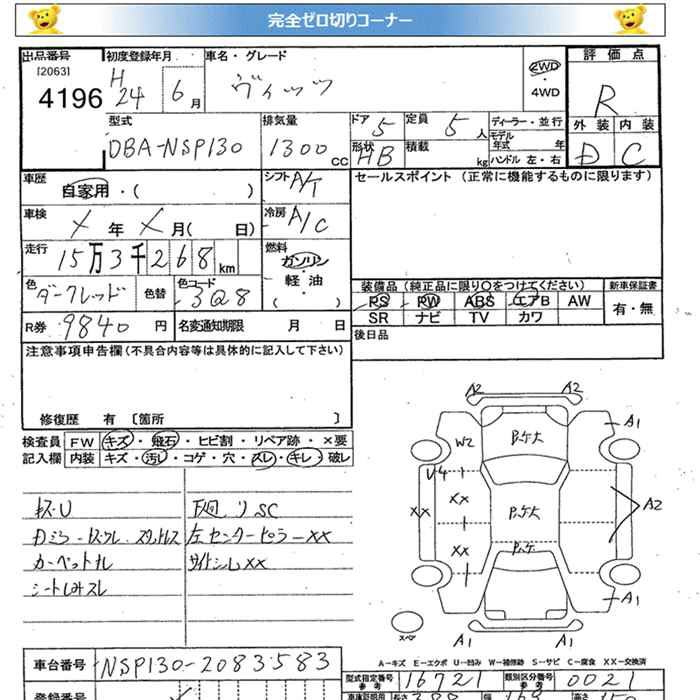 完全ゼロ切りコーナー
出品番号 初度登録年月 車名・グレード 評価点
[2063] H
4196 24 6月 ヴィッツ 2WD R
4WD
型式 排気量 ドア 5 定員 5人 ディーラー・並行 外装 内装
モデル年式 年
DBA-NSP130 1300cc 形状 HB 積載 kg ハンドル 左・右 D C
車歴 シフト A/T セールスポイント (正常に機能するものに限ります)
自家用・( )
車検 メ年メ月( 日) 冷房 A/C
走行 15万3千268km 燃料 ガソリン
軽油
( )
色 ダークレッド 色替 色コード 3Q8 装備品 (純正品に限り○をつけてください) 新車保証書
PS PW ABS エアB AW 有・無
R券 9840円 名変通知期限 月 日 SR ナビ TV カワ
注意事項申告欄(不具合内容等は具体的に記入して下さい) 後日品
修復歴 有 〔箇所 〕
検査員 FW キズ・飛石・ヒビ割・リペア跡・×要
記入欄 内装 キズ・汚レ・コゲ・穴・スレ・キレ・破レ
下廻りSC
左センターピラーXX
カーペットキレ サイドシルXX
A2 A2
A1
W2
U4
XX XX A2
XX
A1
スペア A1 A1
A-キズ E-エクボ U-凹み W-補修跡 S-サビ C-腐食 XX-交換済
車台番号 NSP130-2083583
型式指定番号 参考 16721 類別区分番号 参考 0021
登録番号 車庫証明用 長さ 388 幅 169 高さ 150